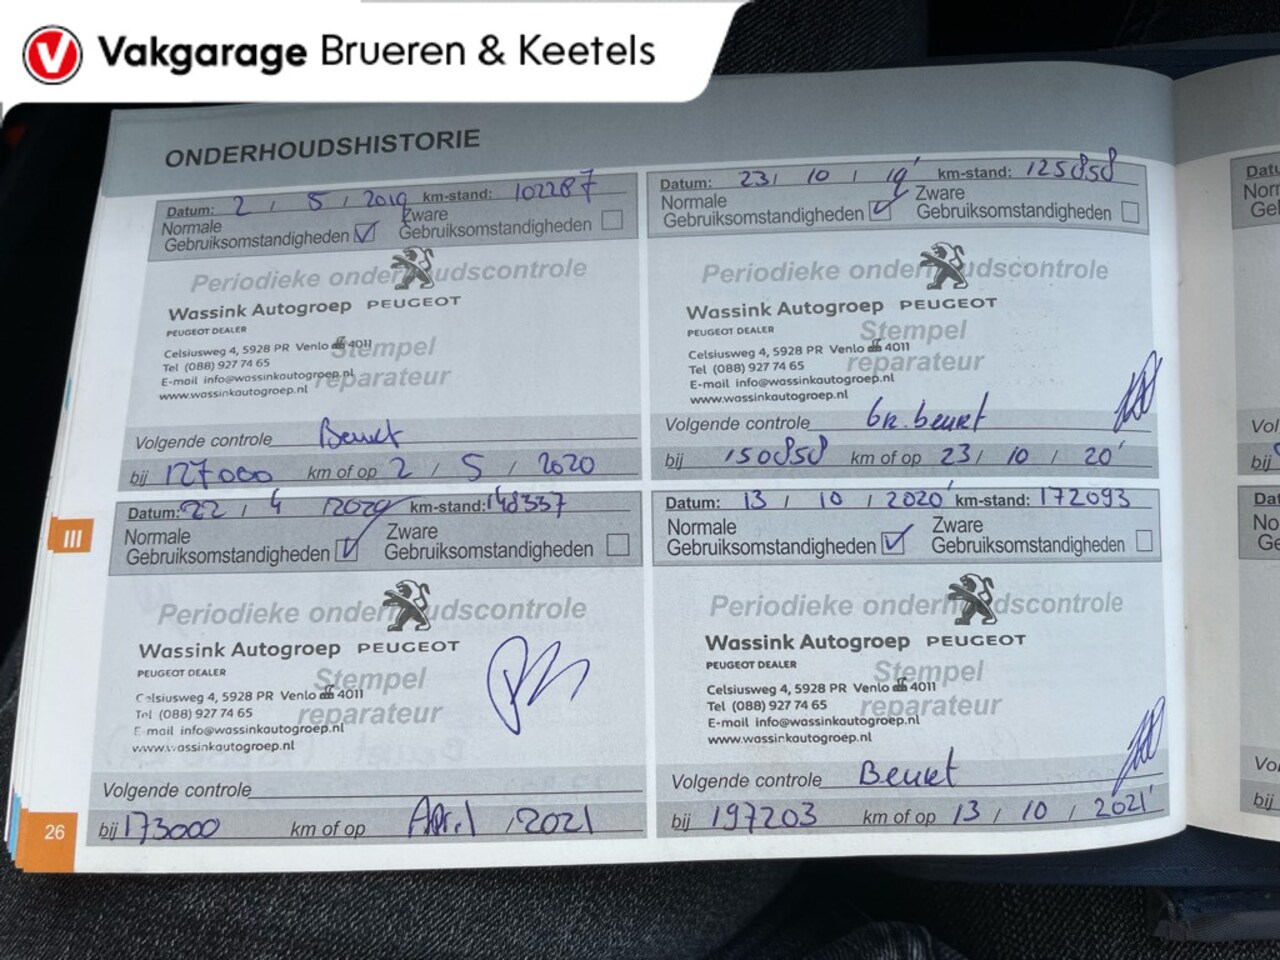 Vakgarage Brueren & Keetels
ONDERHOUDSHISTORIE
Datum: 2 / 5 / 2019 km-stand: 102287
Normale Gebruiksomstandigheden
Zware Gebruiksomstandigheden
Periodieke onderhoudscontrole
Wassink Autogroep PEUGEOT
PEUGEOT DEALER
Stempel
Celsiusweg 4, 5928 PR Venlo 4011
Tel (088) 927 74 65
reparateur
E-mail info@wassinkautogroep.nl
www.wassinkautogroep.nl
Volgende controle Beurt
bij 127000 km of op 2 / 5 / 2020
Datum: 23 / 10 / 19' km-stand: 125858
Normale Gebruiksomstandigheden
Zware Gebruiksomstandigheden
Periodieke onderhoudscontrole
Wassink Autogroep PEUGEOT
PEUGEOT DEALER
Stempel
Celsiusweg 4, 5928 PR Venlo 4011
Tel (088) 927 74 65
reparateur
E-mail info@wassinkautogroep.nl
www.wassinkautogroep.nl
Volgende controle Gr. beurt
bij 150858 km of op 23 / 10 / 20'
Datum: 22 / 4 / 2020 km-stand: 148337
Normale Gebruiksomstandigheden
Zware Gebruiksomstandigheden
Periodieke onderhoudscontrole
Wassink Autogroep PEUGEOT
PEUGEOT DEALER
Stempel
Celsiusweg 4, 5928 PR Venlo 4011
Tel (088) 927 74 65
reparateur
E-mail info@wassinkautogroep.nl
www.wassinkautogroep.nl
Volgende controle
bij 173000 km of op April / 2021
Datum: 13 / 10 / 2020' km-stand: 172093
Normale Gebruiksomstandigheden
Zware Gebruiksomstandigheden
Periodieke onderhoudscontrole
Wassink Autogroep PEUGEOT
PEUGEOT DEALER
Stempel
Celsiusweg 4, 5928 PR Venlo 4011
Tel (088) 927 74 65
reparateur
E-mail info@wassinkautogroep.nl
www.wassinkautogroep.nl
Volgende controle Beurt
bij 197203 km of op 13 / 10 / 2021'
III
26